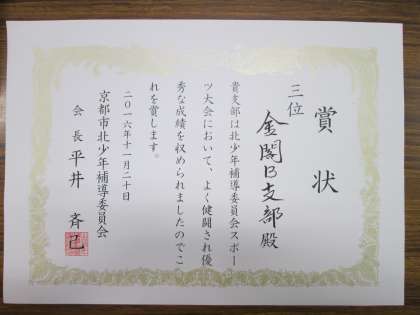 賞状
三位
金閣B支部殿
貴支部は北少年補導委員会スポー
ツ大会において、よく健闘され優
秀な成績を収められましたのでこ
れを賞します。
二〇一六年十一月二十日
京都市北少年補導委員会
会長 平井斉己